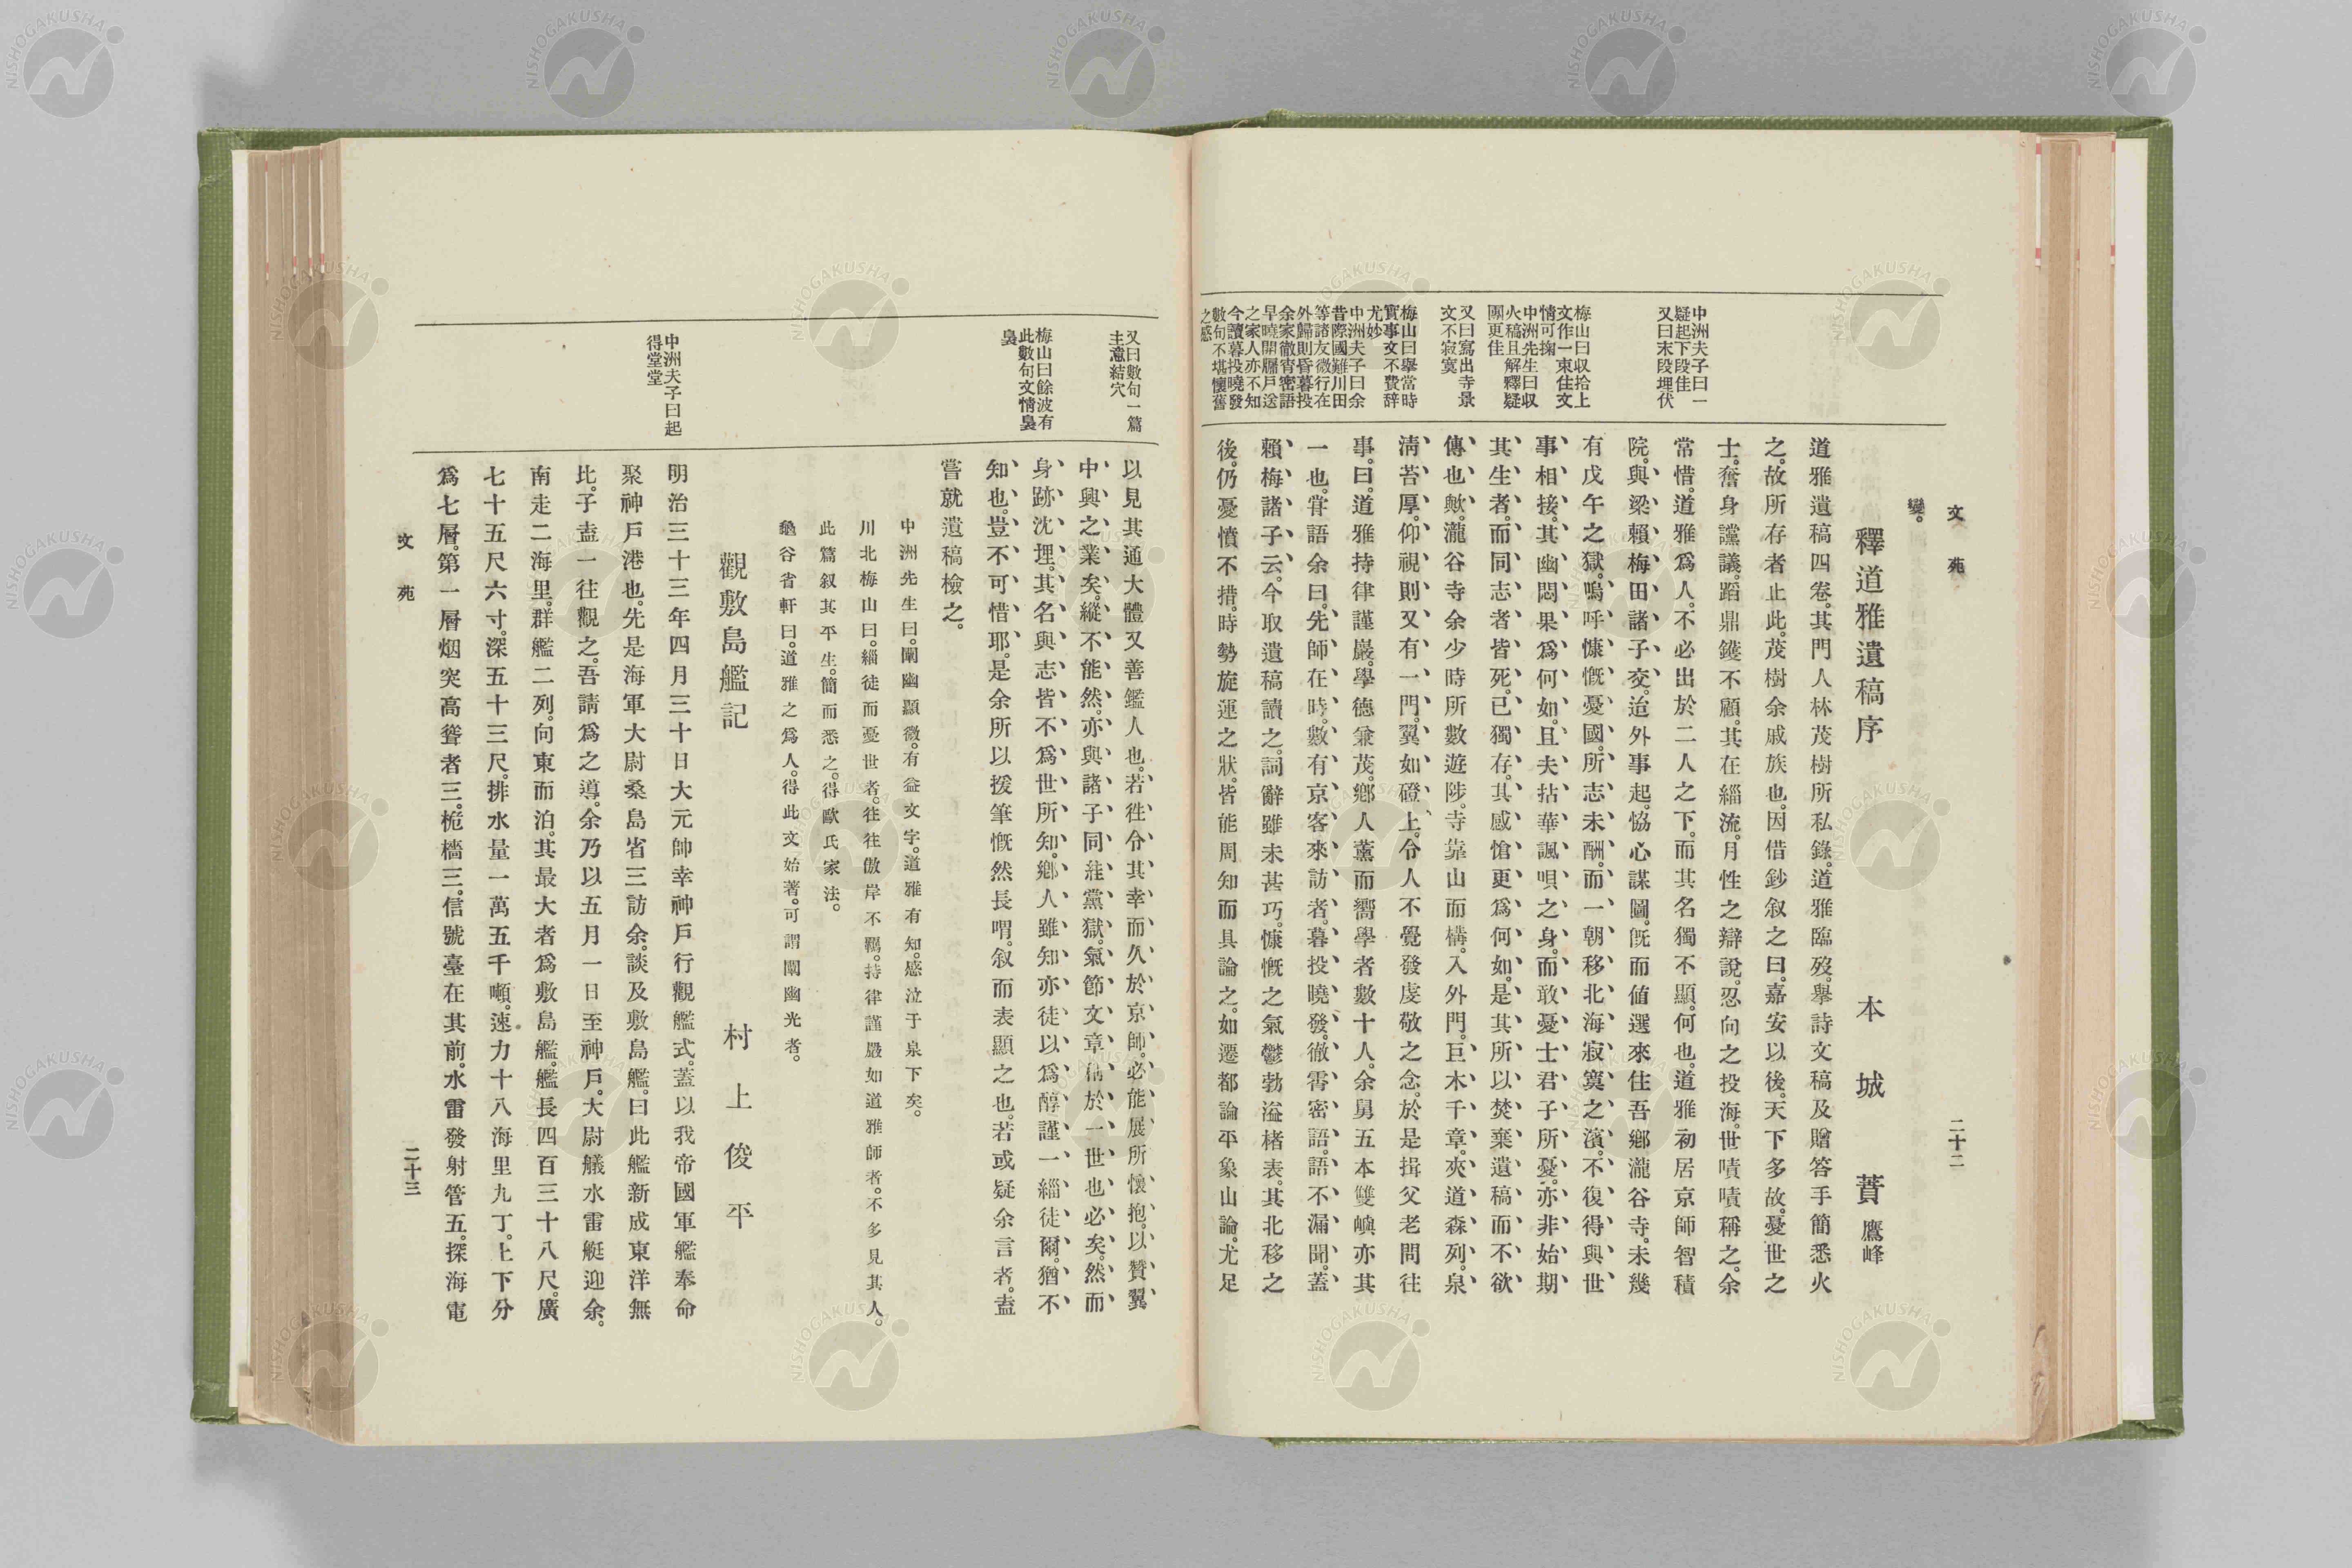 文苑
二十二
變。
釋道雅遺稿序
本城蕡鷹峰
道雅遺稿四卷。其門人林茂樹所私錄。道雅臨歿。擧詩文稿及贈答手簡悉火
之。故所存者止此。茂樹余戚族也。因借鈔叙之曰。嘉安以後。天下多故。憂世之
士。奮身讜議。蹈鼎鑊不顧。其在緇流。月性之辯說。忍向之投海。世嘖嘖稱之。余
常惜。道雅爲人。不必出於二人之下。而其名獨不顯。何也。道雅初居京師智積
院。與梁賴梅田諸子交。迨外事起。恊心謀圖。旣而値選來住吾鄕瀧谷寺。未幾
有戊午之獄。嗚呼慷慨憂國。所志未酬。而一朝移北海寂寞之濱。不復得與世
事相接。其幽悶果爲何如。且夫拈華諷唄之身。而敢憂士君子所憂。亦非始期
其生者。而同志者皆死。已獨存。其感愴更爲何如。是其所以焚棄遺稿而不欲
傳也歟。瀧谷寺余少時所數遊陟。寺靠山而構。入外門。巨木千章。夾道森列。泉
淸苔厚。仰視則又有一門。翼如磴上。令人不覺發虔敬之念。於是揖父老問往
事。曰。道雅持律謹嚴。學德兼茂。鄕人薰而嚮學者數十人。余舅五本雙嶼亦其
一也。甞語余曰。先師在時。數有京客來訪者。暮投曉發。徹霄密語。語不漏聞。蓋
賴梅諸子云。今取遺稿讀之。詞辭雖未甚巧。慷慨之氣鬱勃溢楮表。其北移之
後。仍憂憤不措。時勢旋運之狀。皆能周知而具論之。如遷都論平象山論。尤足
中洲夫子曰一
疑起下段佳
又曰末段埋伏
梅山曰収拾上
文作一束住文
情可掬
中洲先生曰収
火稿且解釋疑
團更佳
又曰寫出寺景
文不寂寞
梅山曰擧當時
實事文不費辞
尤妙
中洲夫子曰余
昔際國難川田
等諸友微行在
外歸則昏暮投
余家徹宵密語
早曉開牖戶送
之家人亦不知
今讀暮投曉發
數句不堪懷舊
之感
以見其通大體又善鑑人也。若徃令其幸而久於京師。必能展所懷抱。以贊翼
中興之業矣。縱不能然。亦與諸子同絓黨獄。氣節文章俻於一世也必矣。然而
身跡沈埋。其名與志皆不爲世所知。鄕人雖知亦徒以爲醇謹一緇徒爾。猶不
知也。豈不可惜耶。是余所以援筆慨然長喟。叙而表顯之也。若或疑余言者。盍
嘗就遺稿檢之。
中洲先生曰。闡幽顯微。有益文字。道雅有知。感泣于泉下矣。
川北梅山曰。緇徒而憂世者。往往傲岸不羈。持律謹嚴如道雅師者。不多見其人。
此篇叙其平生。簡而悉之。得歐氏家法。
龜谷省軒曰。道雅之爲人。得此文始著。可謂闡幽光者。
觀敷島艦記
村上俊平
明治三十三年四月三十日大元帥幸神戶行觀艦式。蓋以我帝國軍艦奉命
聚神戶港也。先是海軍大尉桑島省三訪余。談及敷島艦。曰此艦新成東洋無
比。子盍一往觀之。吾請爲之導。余乃以五月一日至神戶。大尉艤水雷艇迎余。
南走二海里。群艦二列。向東而泊。其最大者爲敷島艦。艦長四百三十八尺。廣
七十五尺六寸。深五十三尺。排水量一萬五千噸。速力十八海里九丁。上下分
爲七層。第一層烟突高聳者三。桅檣三。信號臺在其前。水雷發射管五。探海電
又曰數句一篇
主意結穴
梅山曰餘波有
此數句文情裊
裊
中洲夫子曰起
得堂堂
文苑
二十三